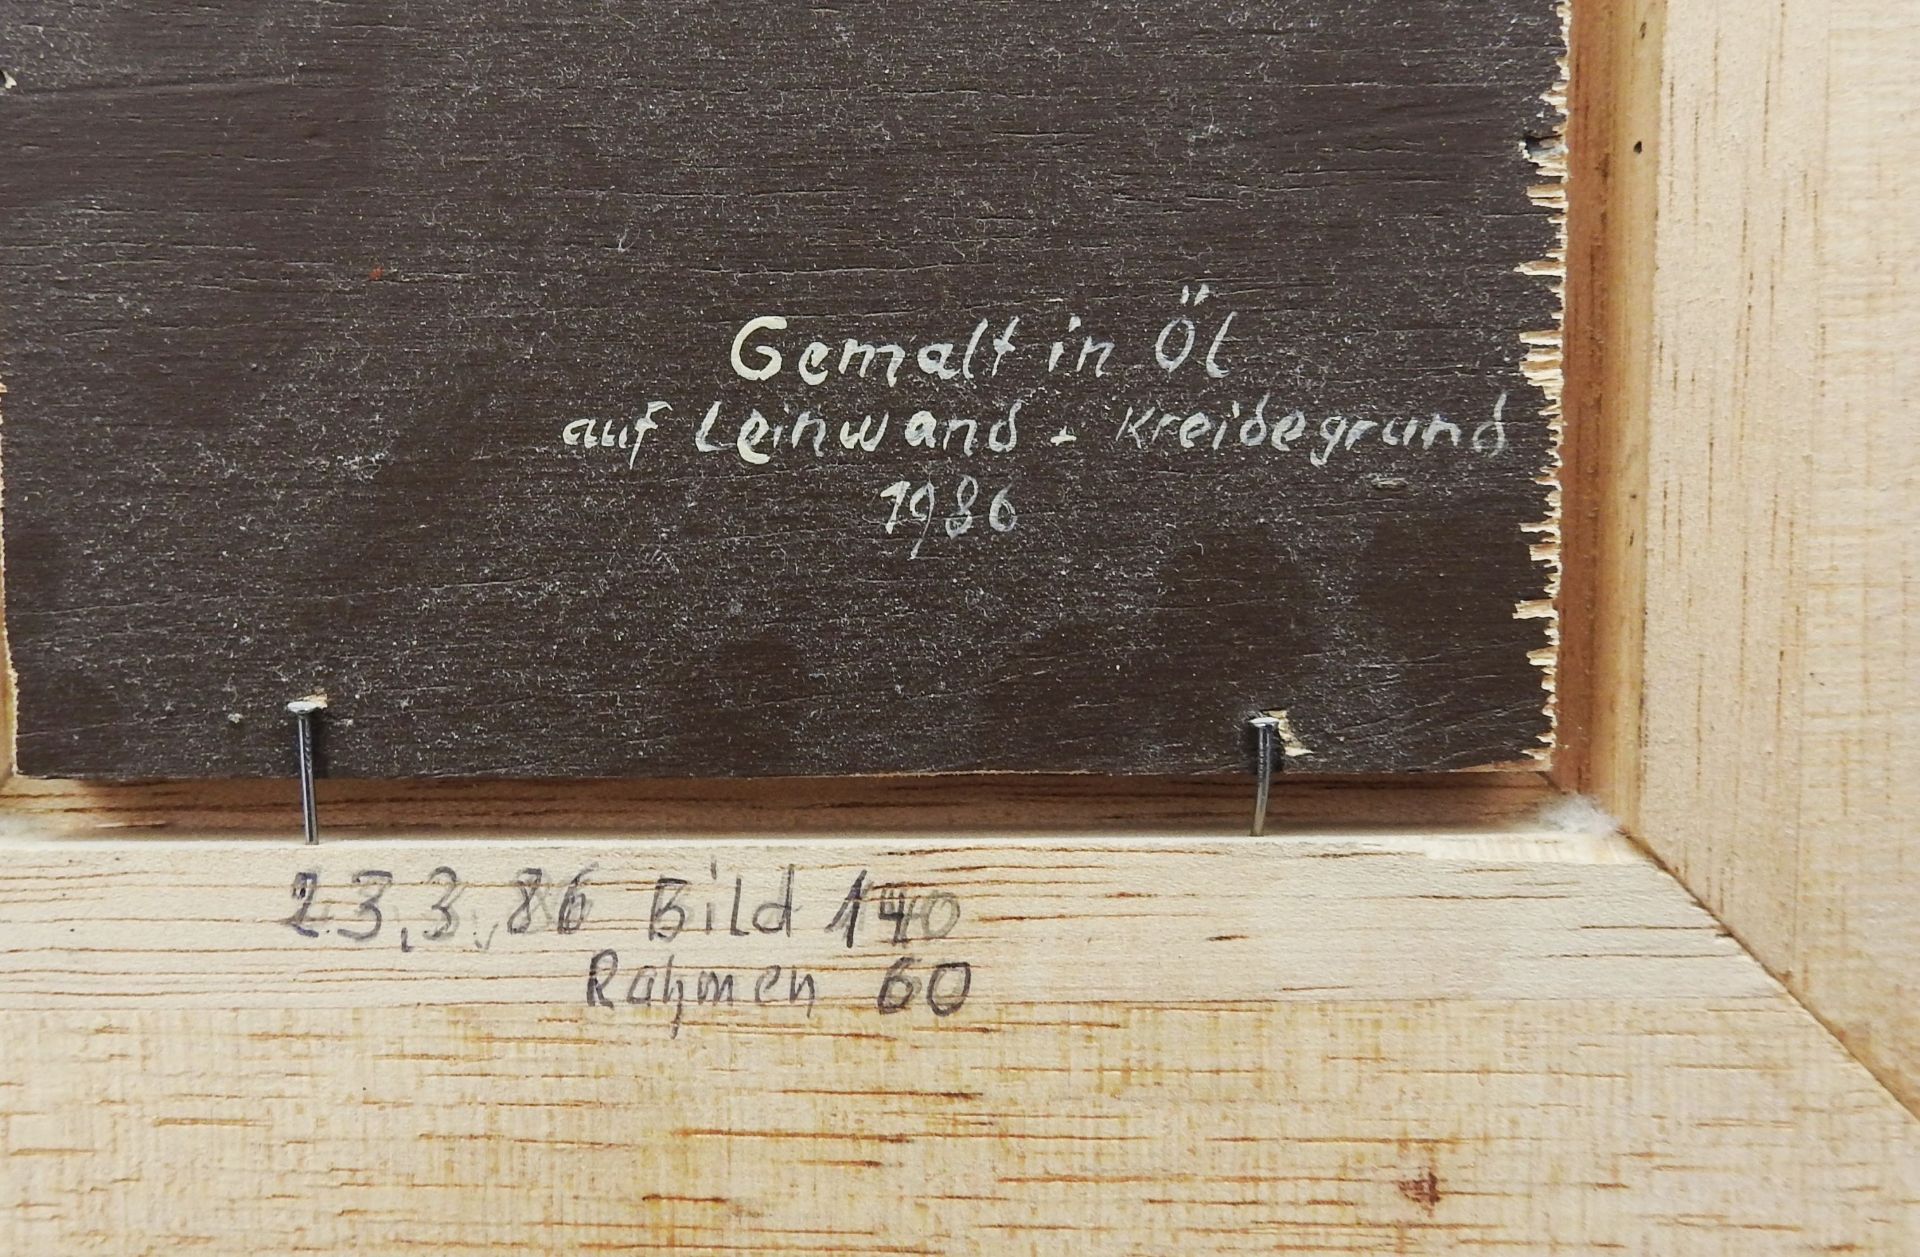 Gemalt in Öl
auf Leinwand - Kreidegrund
1986
23.3.86 Bild 140
Rahmen 60